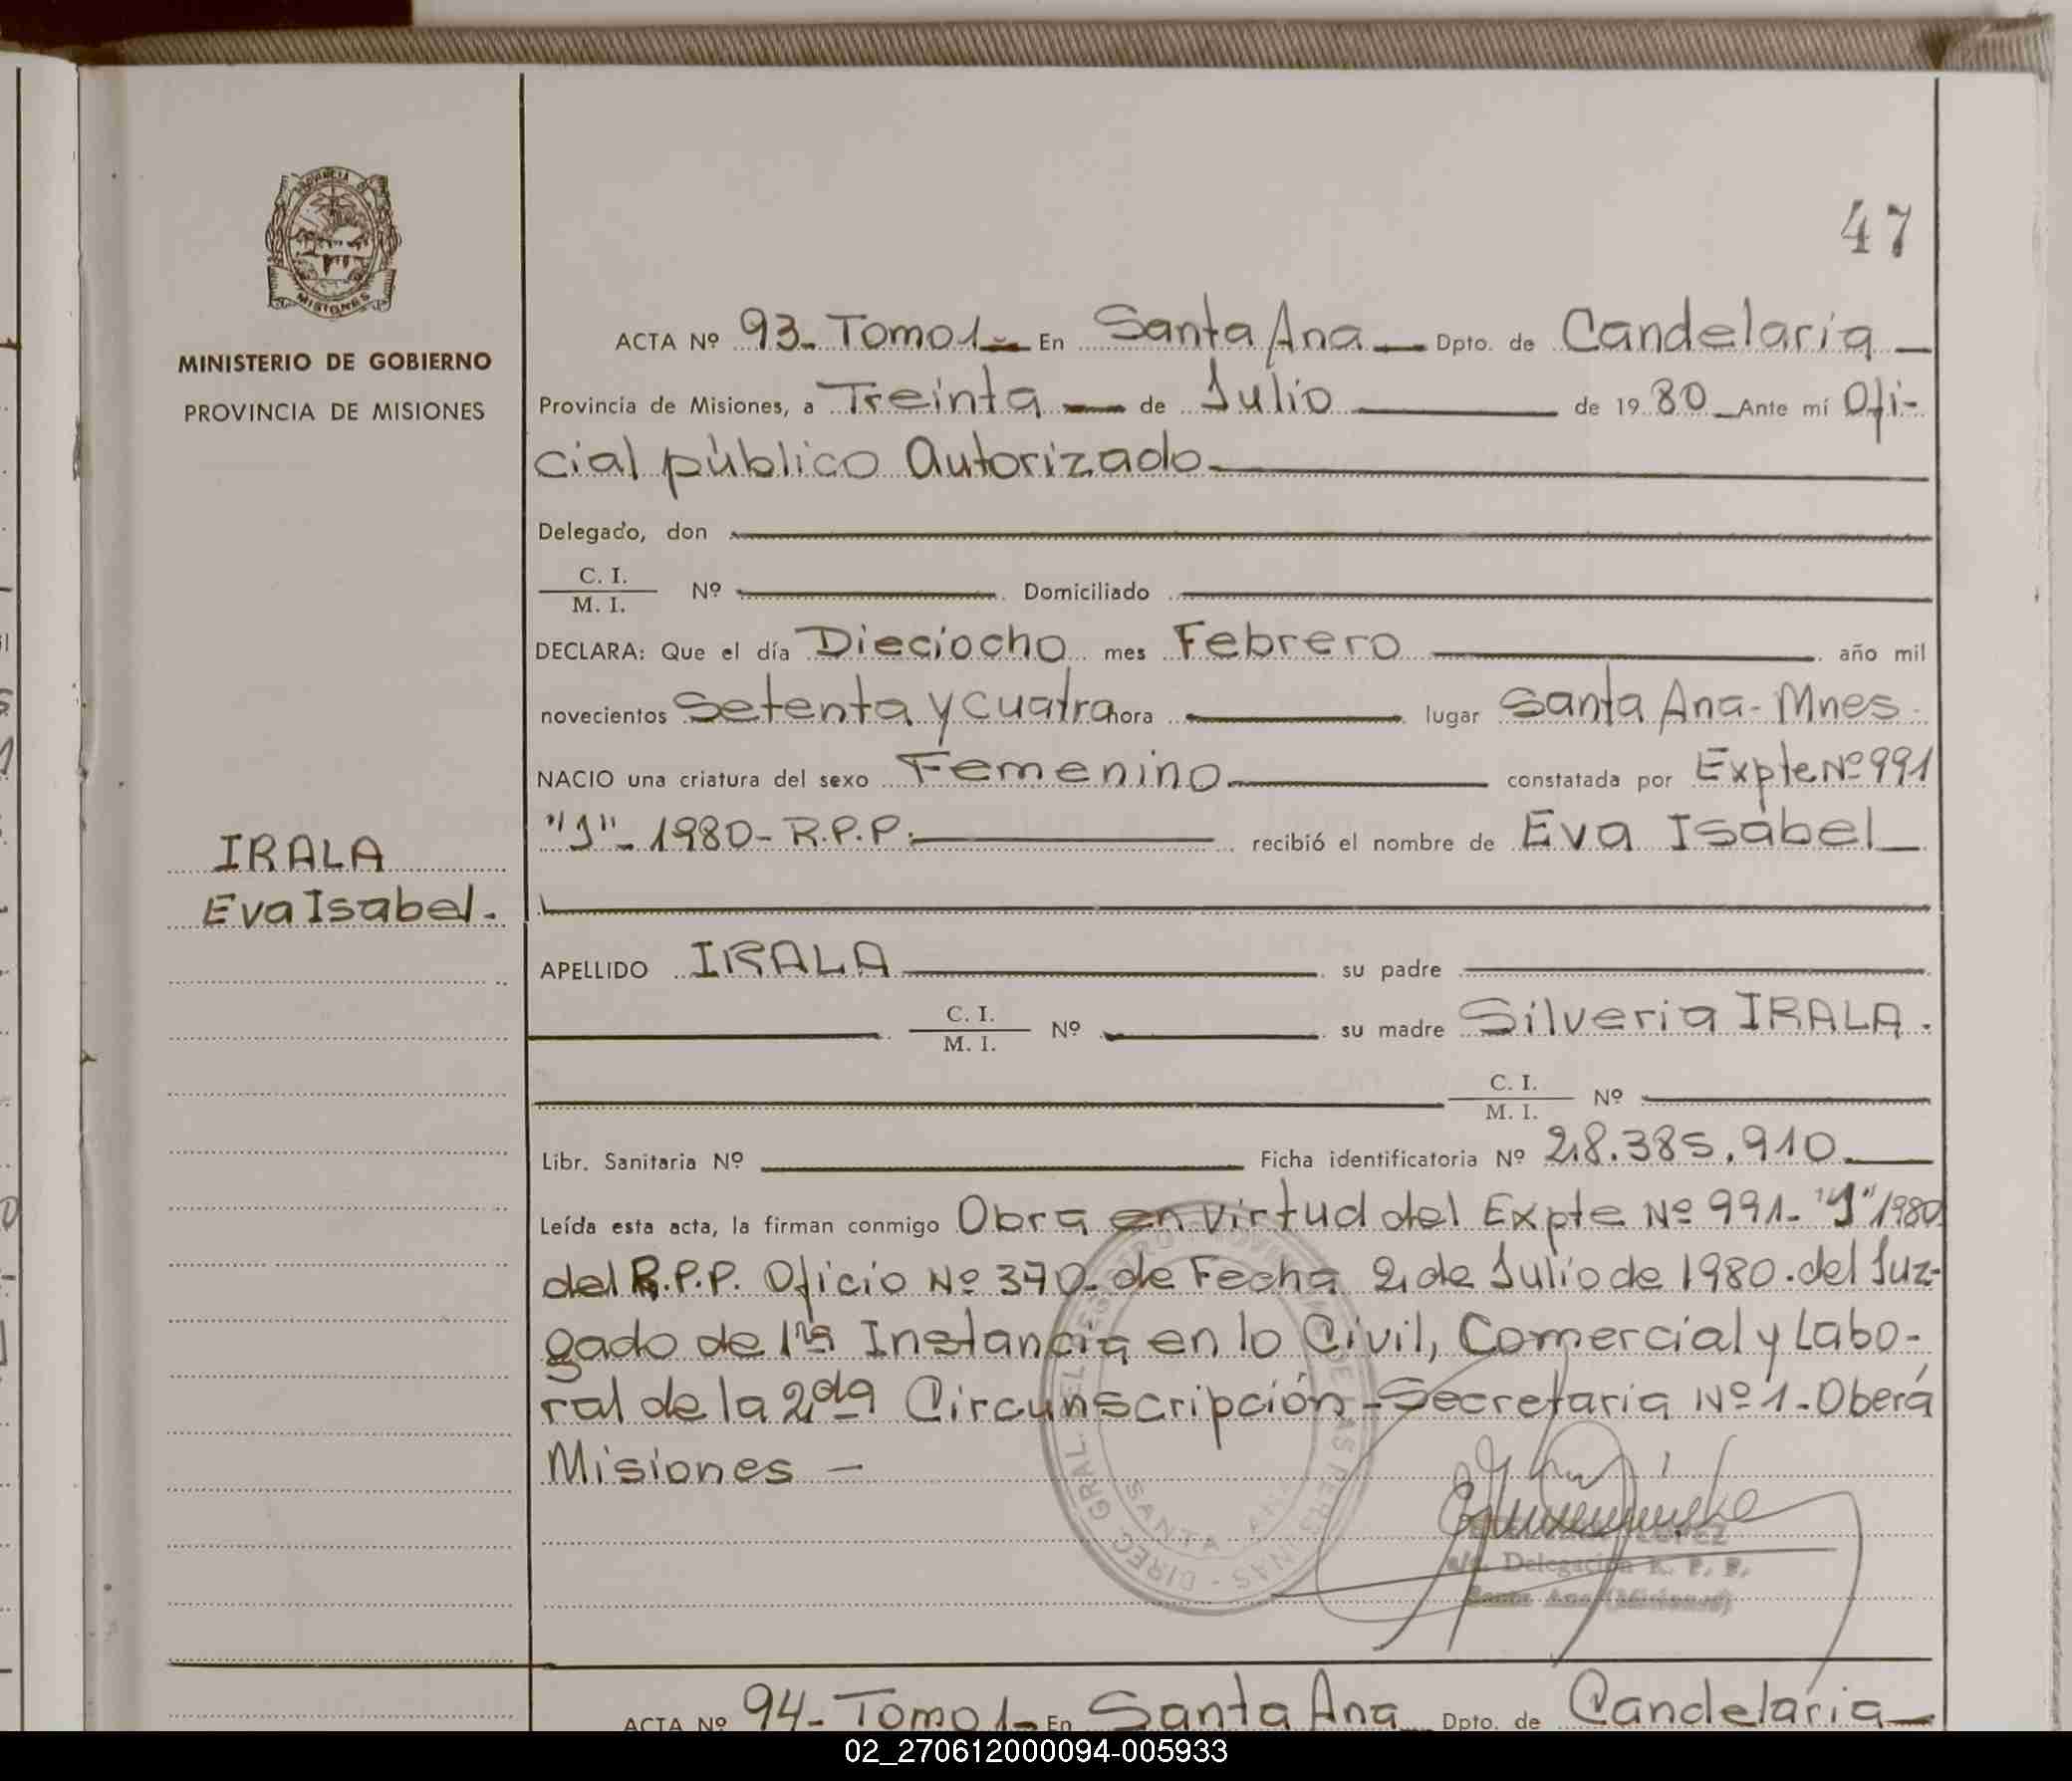 47
PROVINCIA DE
MISIONES
MINISTERIO DE GOBIERNO
PROVINCIA DE MISIONES
ACTA Nº 93- Tomo 1- En Santa Ana - Dpto. de Candelaria -
Provincia de Misiones, a Treinta - de Julio de 1980 - Ante mí Ofi-
cial público Autorizado -
Delegado, don
C. I.
M. I. Nº Domiciliado
DECLARA: Que el día Dieciocho mes Febrero año mil
novecientos Setenta y cuatro hora lugar Santa Ana - Mnes.
NACIO una criatura del sexo Femenino constatada por Expte Nº 991
"J" - 1980 - R.P.P. recibió el nombre de Eva Isabel
IRALA
Eva Isabel.
APELLIDO IRALA su padre
C. I.
M. I. Nº su madre Silveria IRALA.
C. I.
M. I. Nº
Libr. Sanitaria Nº Ficha identificatoria Nº 28.385.910
Leída esta acta, la firman conmigo Obra en virtud del Expte Nº 991- "J" 1980
del R.P.P. Oficio Nº 370- de Fecha 2 de Julio de 1980. del Juz-
gado de 1ra Instancia en lo Civil, Comercial y Labo-
ral de la 2da Circunscripción - Secretaria Nº 1 - Oberá
Misiones -
DIREC. GRAL. DEL REGISTRO PROVINC. DE LAS PERSONAS -
SANTA ANA
LOPEZ
Delegación R. P. P.
Santa Ana (Misiones)
ACTA Nº 94- Tomo 1- En Santa Ana Dpto. de Candelaria -
02_270612000094-005933